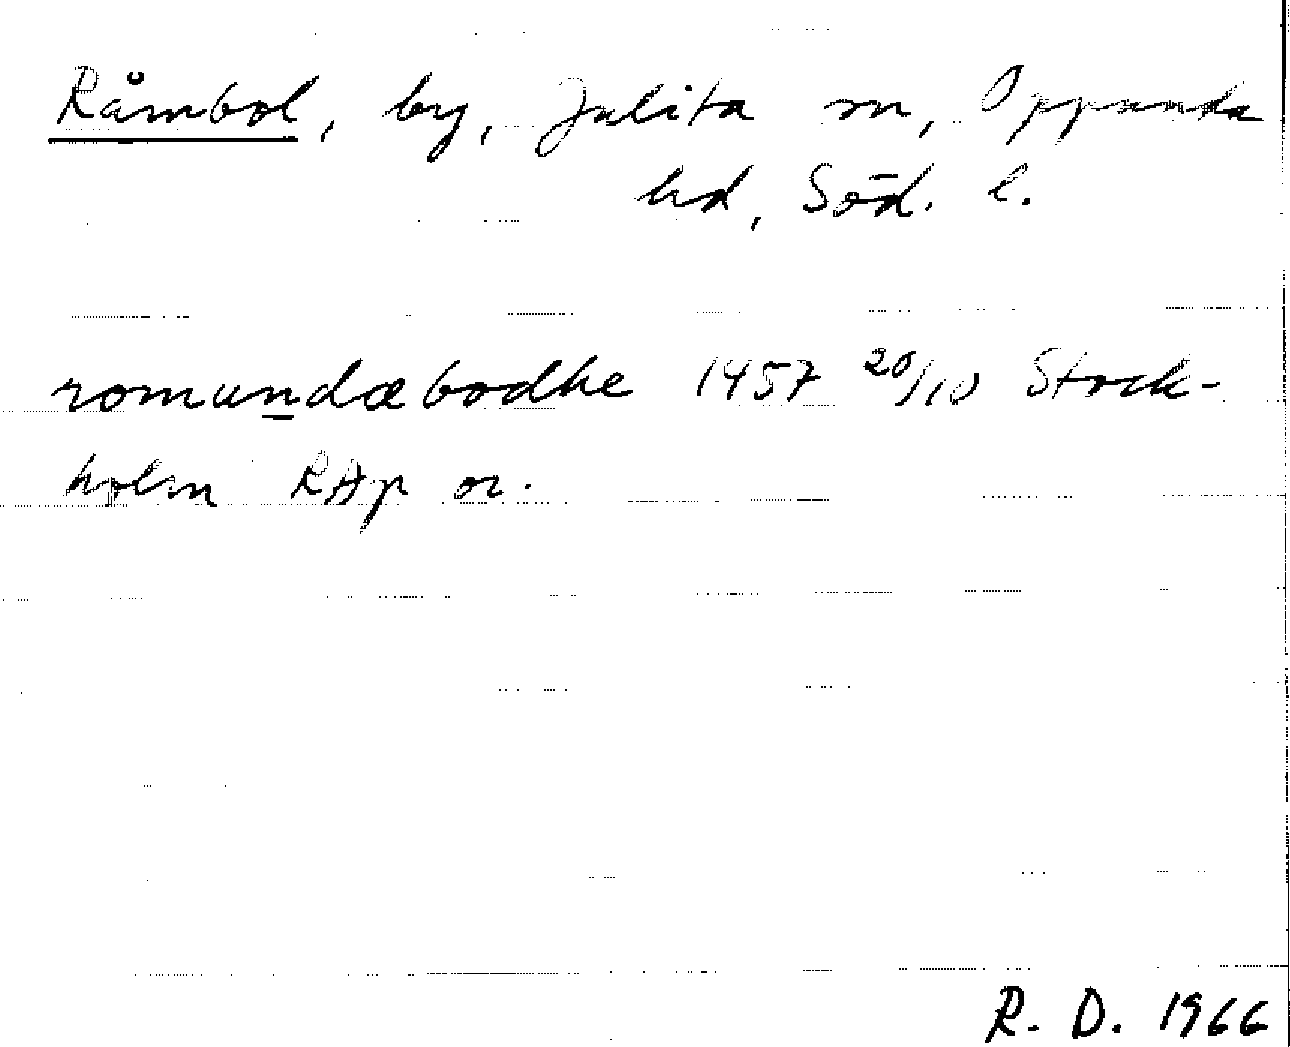 Råmbol, by, Julita sn, Oppunda
hd, Söd. l.
romundæbodhe 1457 20/10 Stock-
holm RAp or.
R. D. 1966